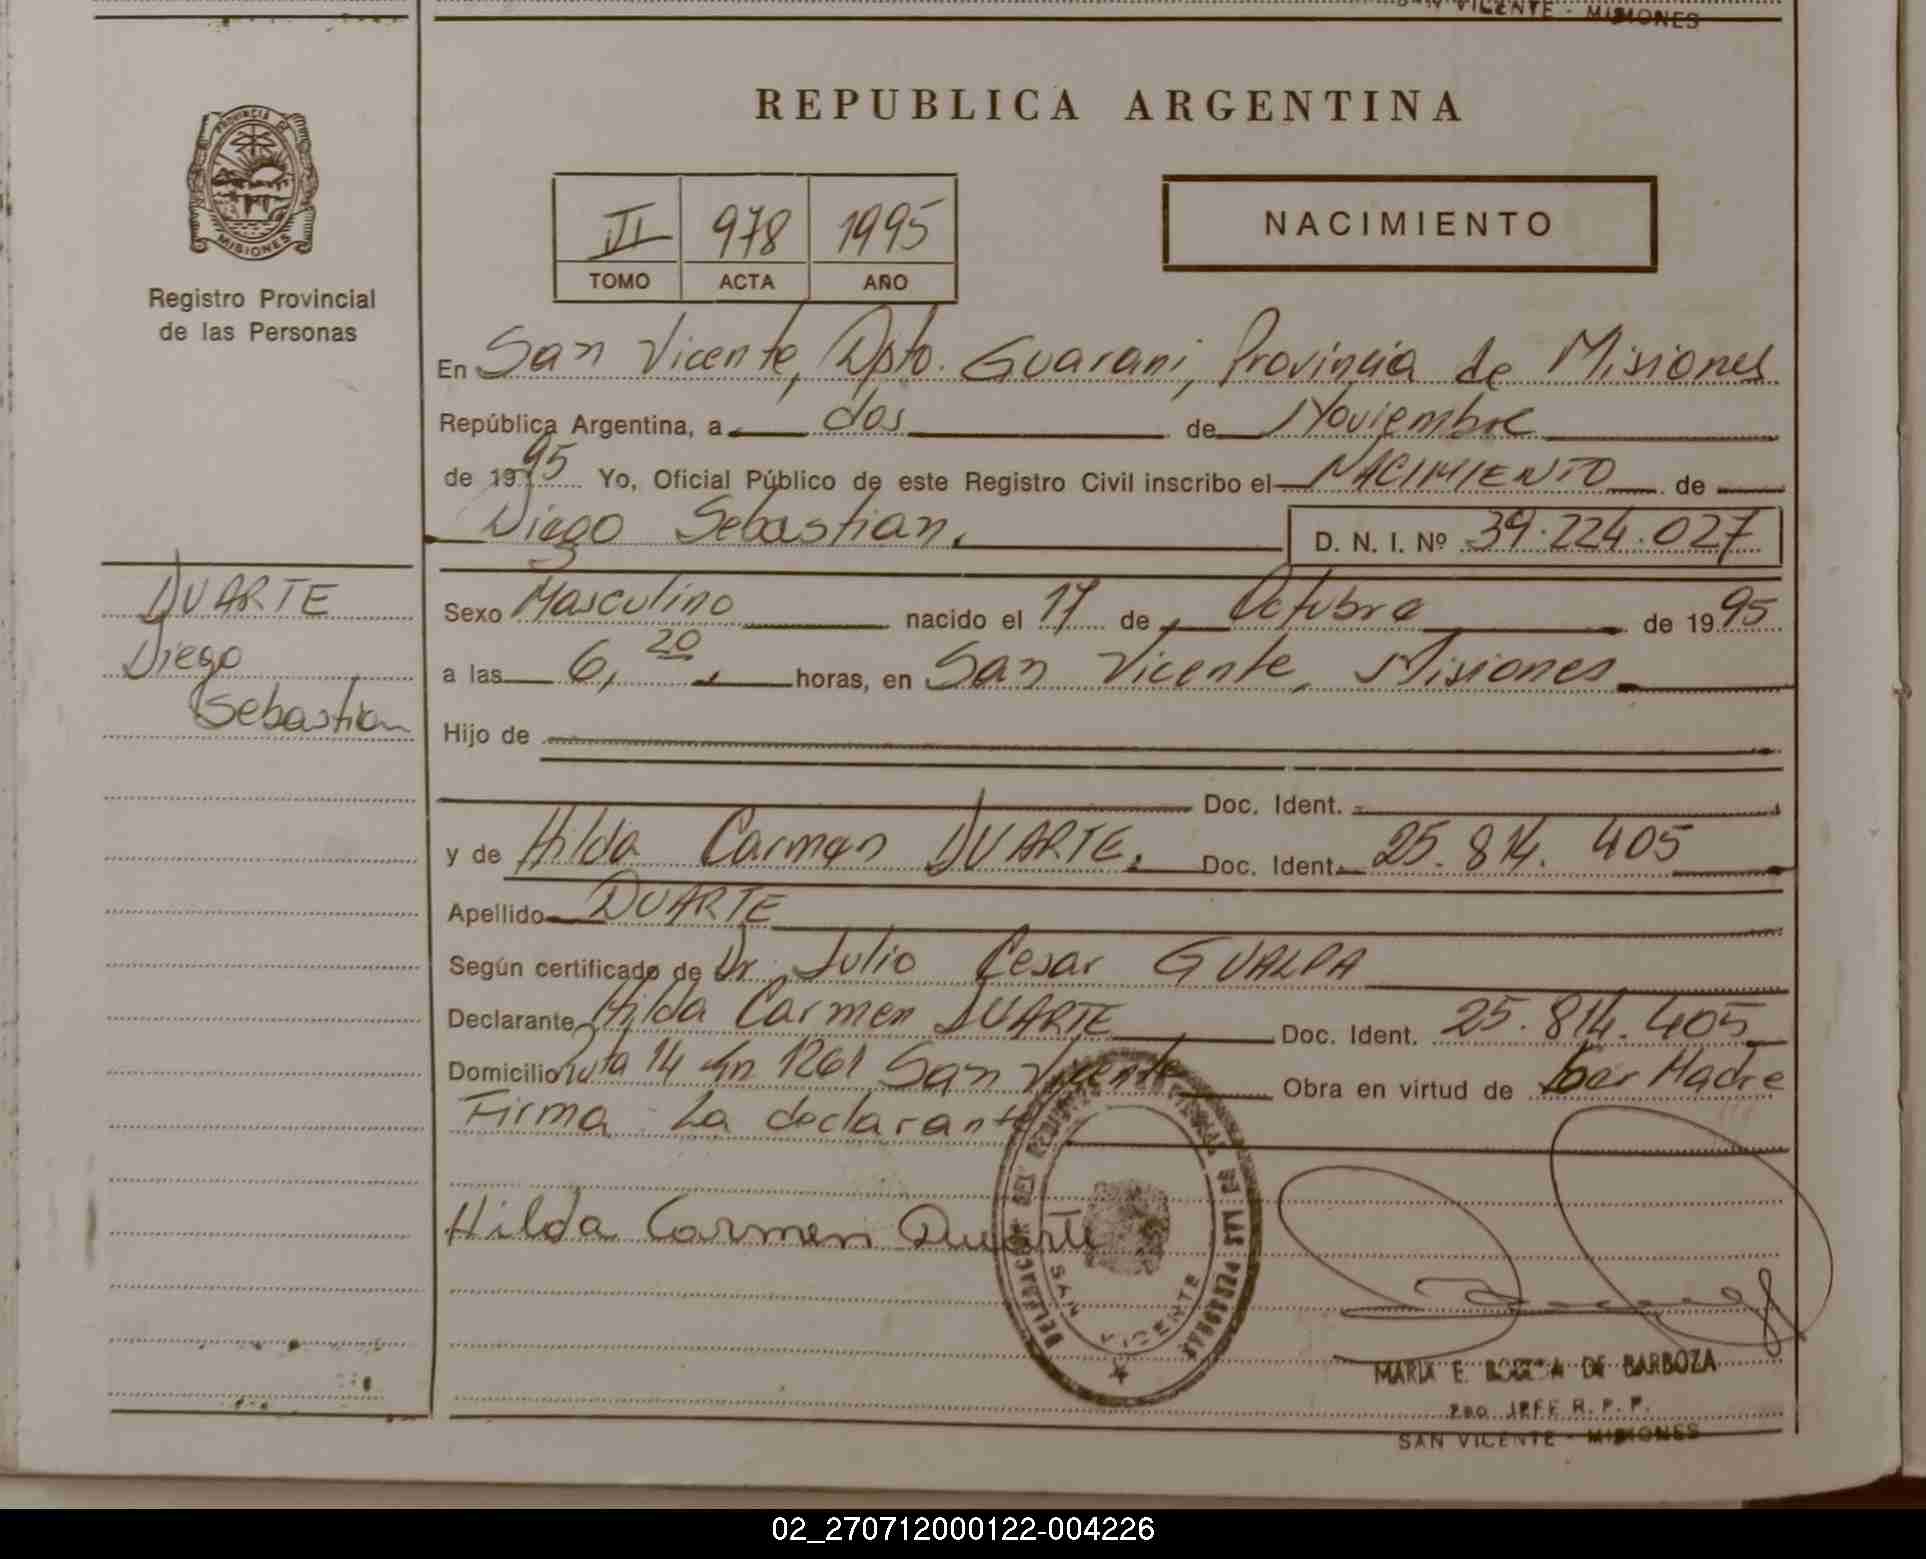 SAN VICENTE - MISIONES
REPUBLICA ARGENTINA
PROVINCIA DE
MISIONES
Registro Provincial
de las Personas
II 978 1995
TOMO ACTA AÑO
NACIMIENTO
En San Vicente, Dpto. Guarani, Provincia de Misiones
República Argentina, a dos de Noviembre
de 1995 Yo, Oficial Público de este Registro Civil inscribo el NACIMIENTO de
Diego Sebastian. D. N. I. Nº 39.224.027
DUARTE
Diego
Sebastian
Sexo Masculino nacido el 17 de Octubre de 1995
a las 6,20 horas, en San Vicente, Misiones
Hijo de
Doc. Ident.
y de Hilda Carmen DUARTE. Doc. Ident. 25.814.405
Apellido DUARTE
Según certificado de Dr. Julio Cesar GUALPA
Declarante Hilda Carmen DUARTE Doc. Ident. 25.814.405
Domicilio Ruta 14 Km 1261 San Vicente Obra en virtud de ser Madre
Firma: La declarante
Hilda Carmen Duarte
SAN VICENTE
MARIA E. DE BARBOZA
2do JEFE R. P. P.
SAN VICENTE - MISIONES
02_270712000122-004226